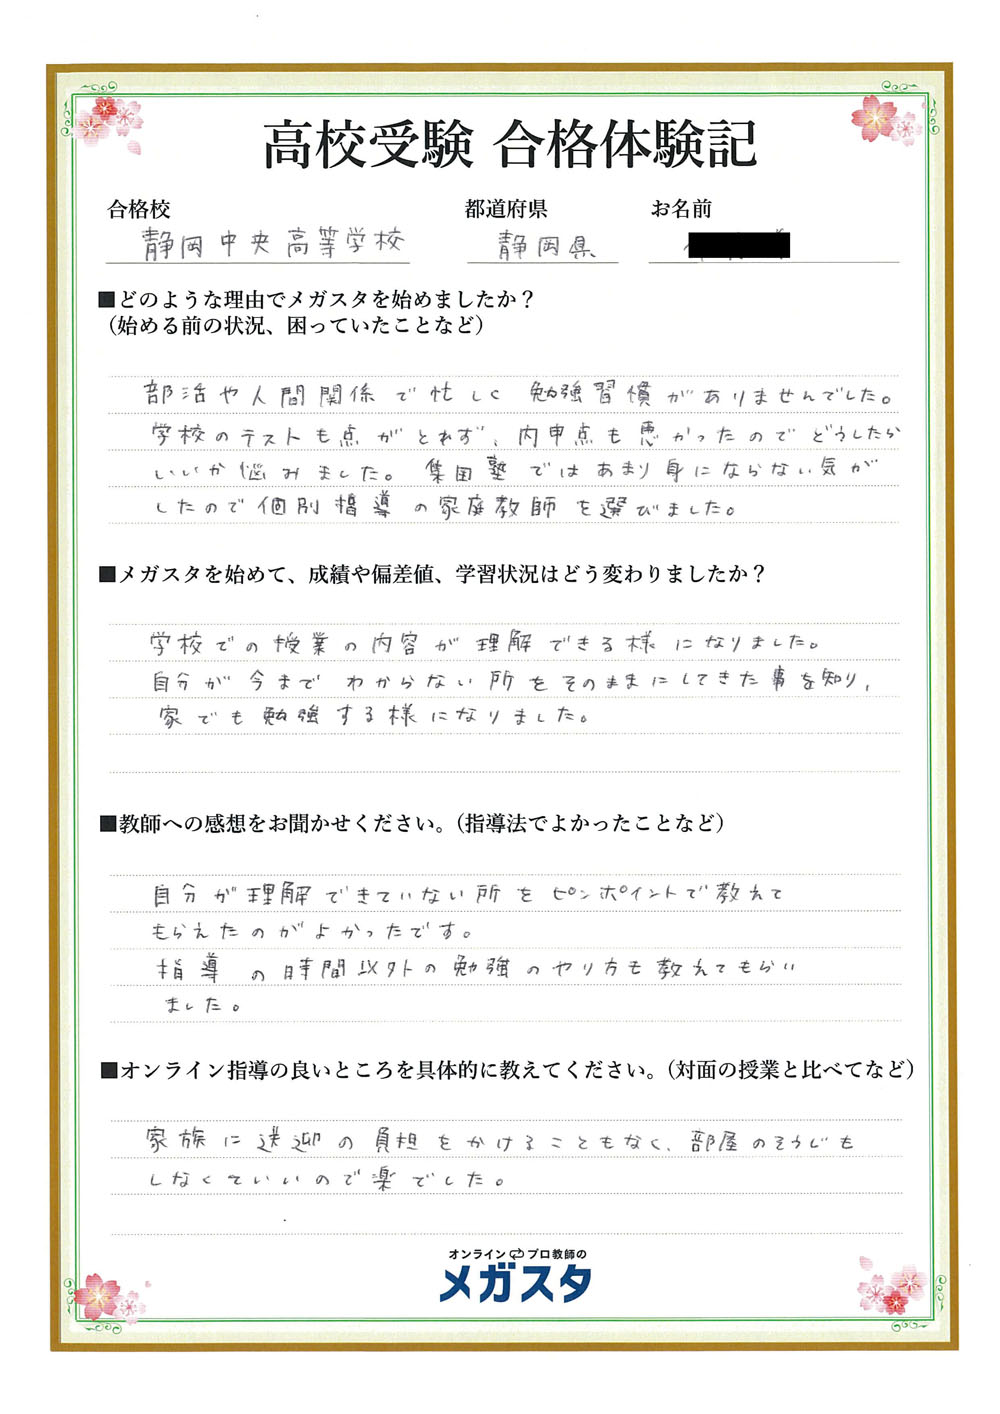 高校受験 合格体験記
合格校 都道府県 お名前
静岡中央高等学校 静岡県
■どのような理由でメガスタを始めましたか？
（始める前の状況、困っていたことなど）
部活や人間関係で忙しく 勉強習慣がありませんでした。
学校のテストも点がとれず、内申点も悪かったのでどうしたら
いいか悩みました。集団塾ではあまり身にならない気が
したので個別指導の家庭教師を選びました。
■メガスタを始めて、成績や偏差値、学習状況はどう変わりましたか？
学校での授業の内容が理解できる様になりました。
自分が今までわからない所をそのままにしてきた事を知り、
家でも勉強する様になりました。
■教師への感想をお聞かせください。（指導法でよかったことなど）
自分が理解できていない所をピンポイントで教えて
もらえたのがよかったです。
指導の時間以外の勉強のやり方も教えてもらい
ました。
■オンライン指導の良いところを具体的に教えてください。（対面の授業と比べてなど）
家族に送迎の負担をかけることもなく、部屋のそうじも
しなくていいので楽でした。
オンライン プロ教師の
メガスタ